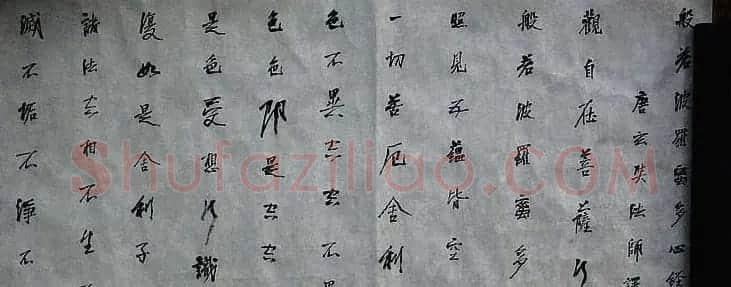 般若波羅蜜多心經
唐玄奘法師譯
觀自在菩薩行
般若波羅蜜多
照見五蘊皆空
一切苦厄舍利
色不異空空不異
色色即是空空
是色受想行識
復如是舍利子
諸法空相不生
滅不垢不淨不
Shufaziliao.COM